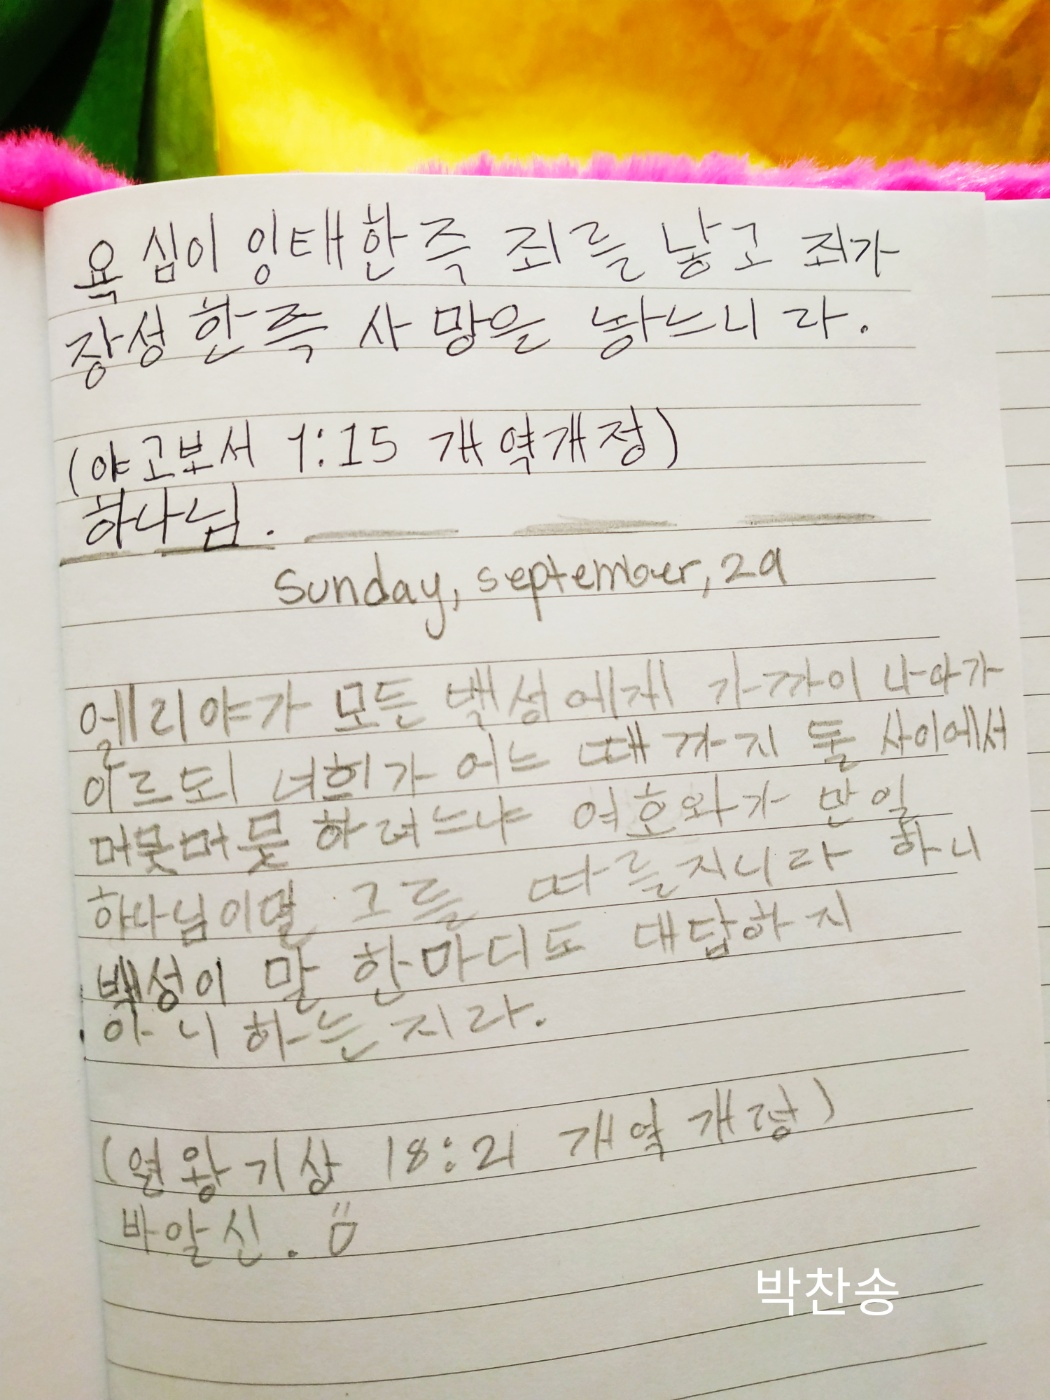 욕심이 잉태한즉 죄를 낳고 죄가
장성한즉 사망을 낳느니라.
(야고보서 1:15 개역개정)
하나님.
Sunday, september, 29
엘리야가 모든 백성에게 가까이 나아가
이르되 너희가 어느 때까지 둘 사이에서
머뭇머뭇 하려느냐 여호와가 만일
하나님이면 그를 따를지니라 하니
백성이 말 한마디도 대답하지
아니하는지라.
(열왕기상 18:21 개역개정)
바알신.
박찬송